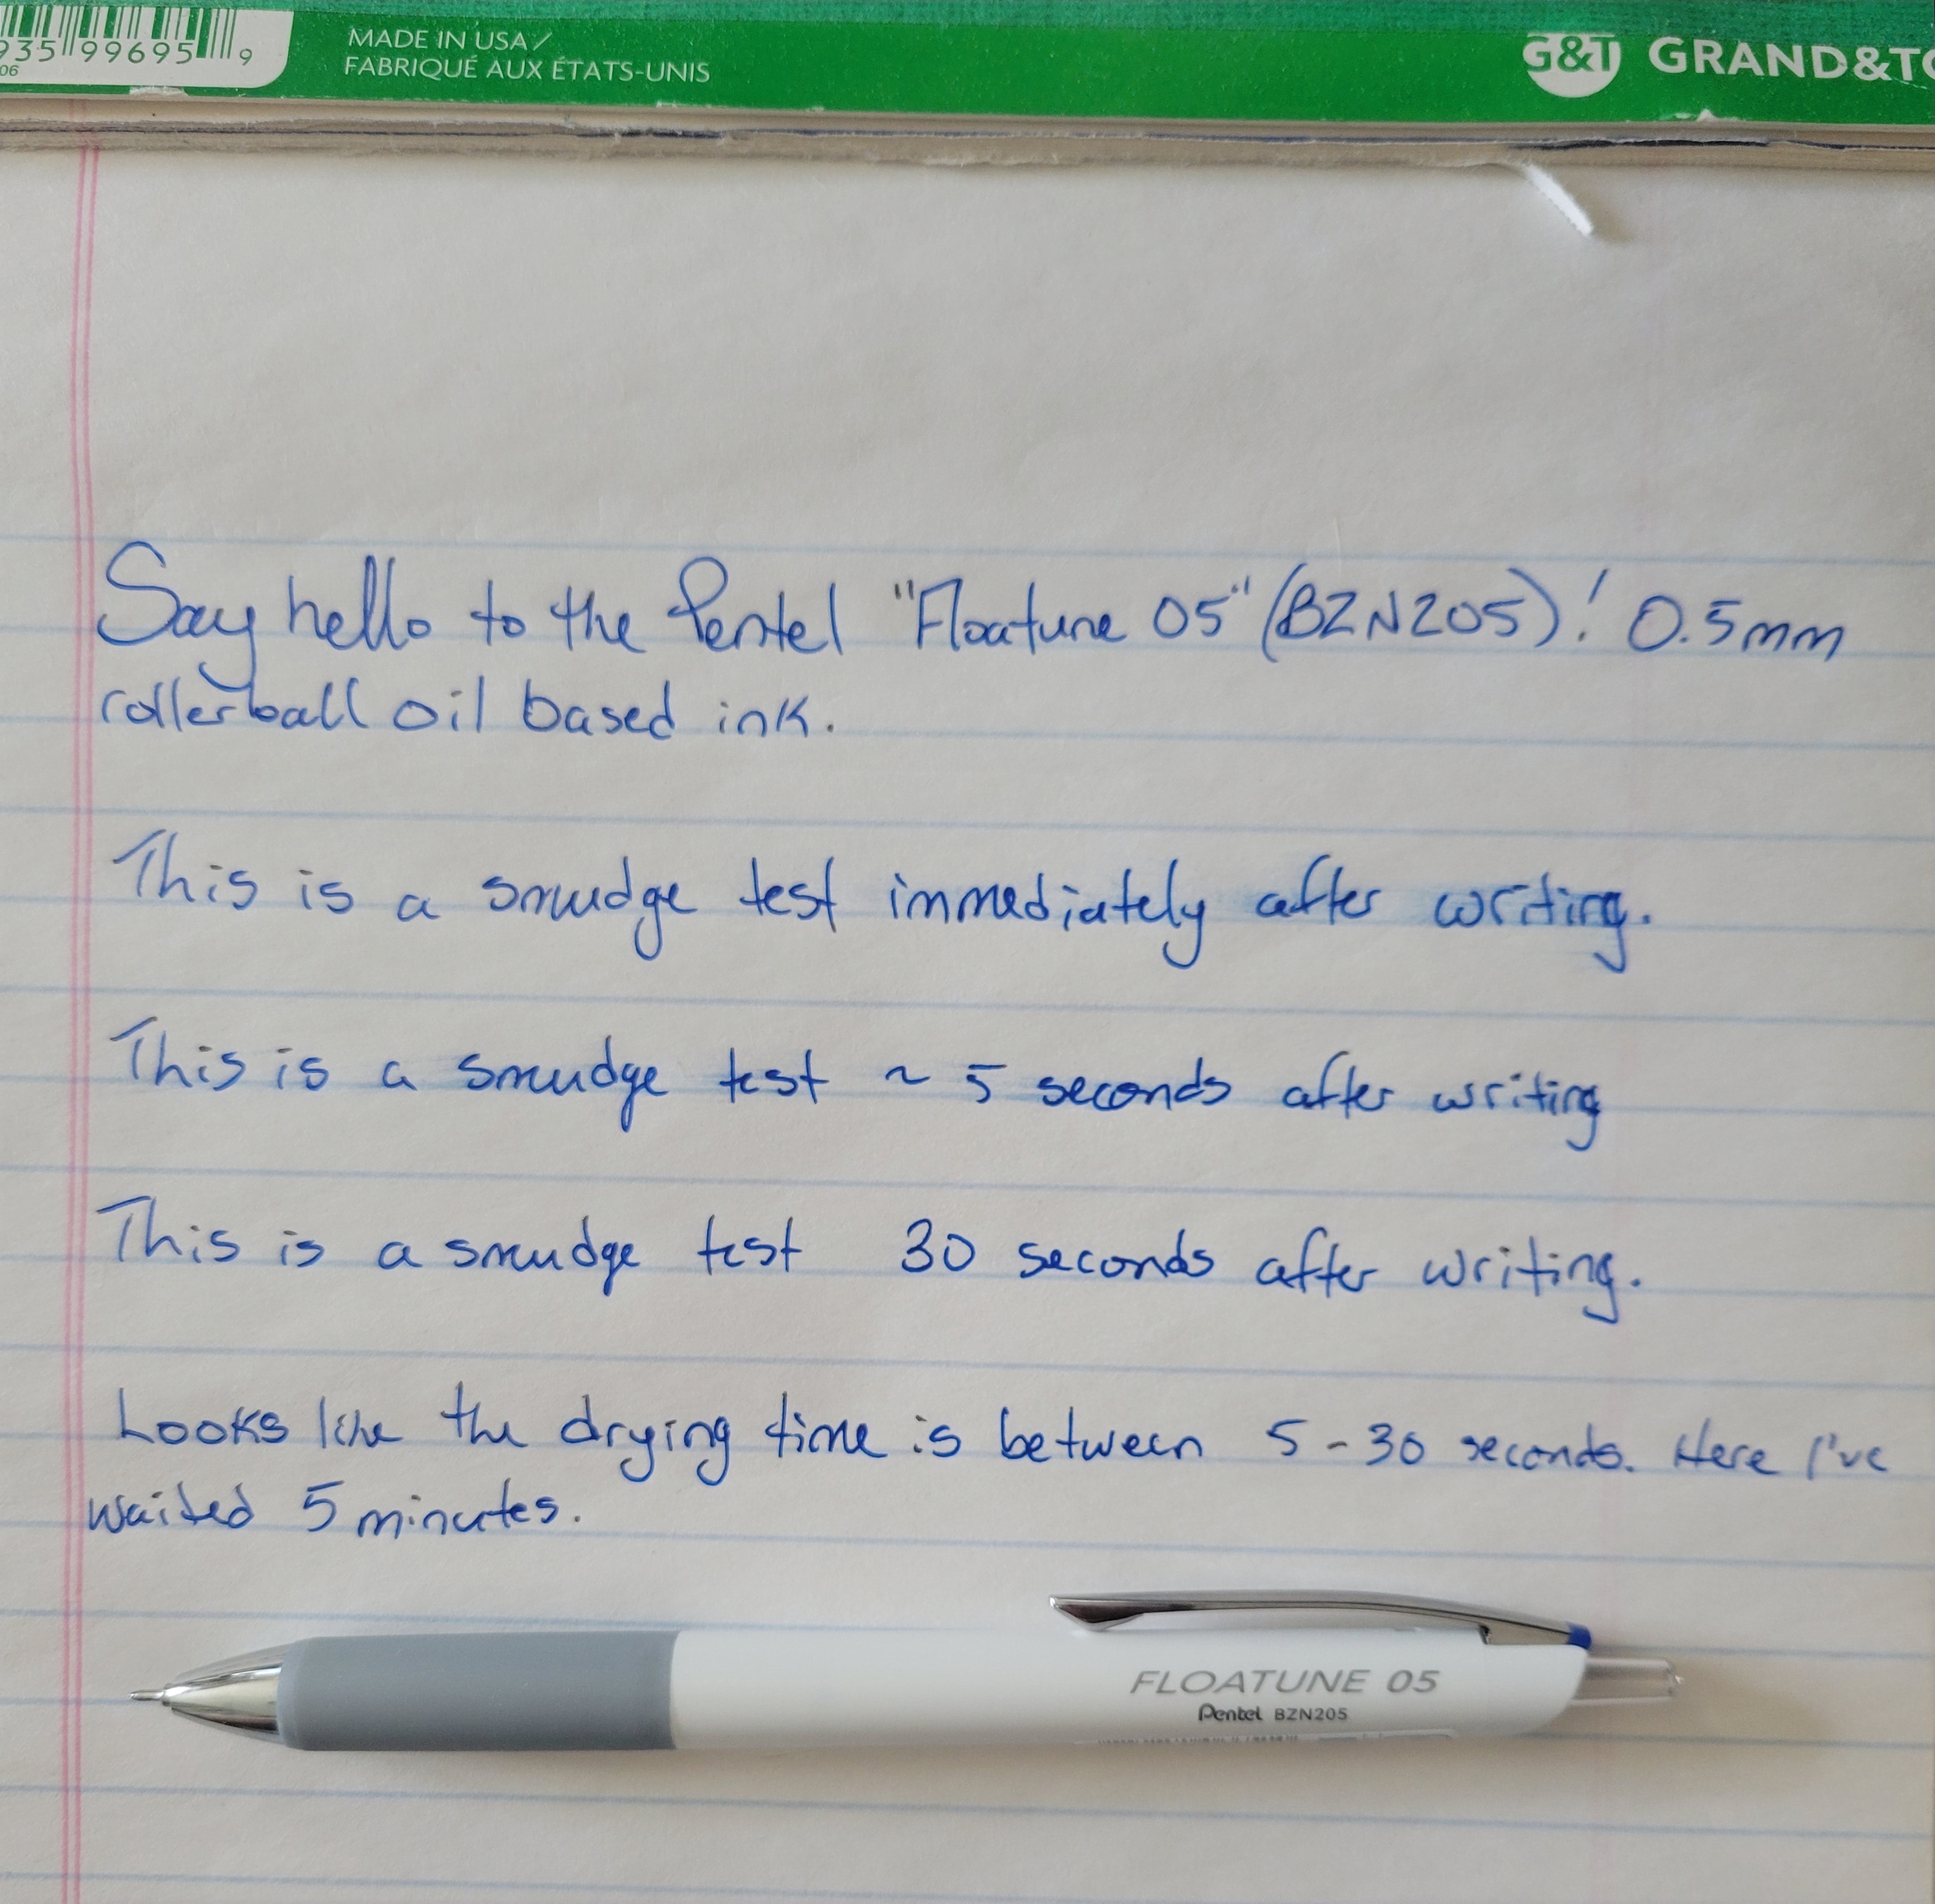 935 99695 9
06
MADE IN USA /
FABRIQUÉ AUX ÉTATS-UNIS
G&T GRAND&TO
Say hello to the Pentel "Floatune 05" (BZN205)! 0.5mm
rollerball oil based ink.
This is a smudge test immediately after writing.
This is a smudge test ~ 5 seconds after writing
This is a smudge test 30 seconds after writing.
Looks like the drying time is between 5-30 seconds. Here I've
waited 5 minutes.
FLOATUNE 05
Pentel BZN205